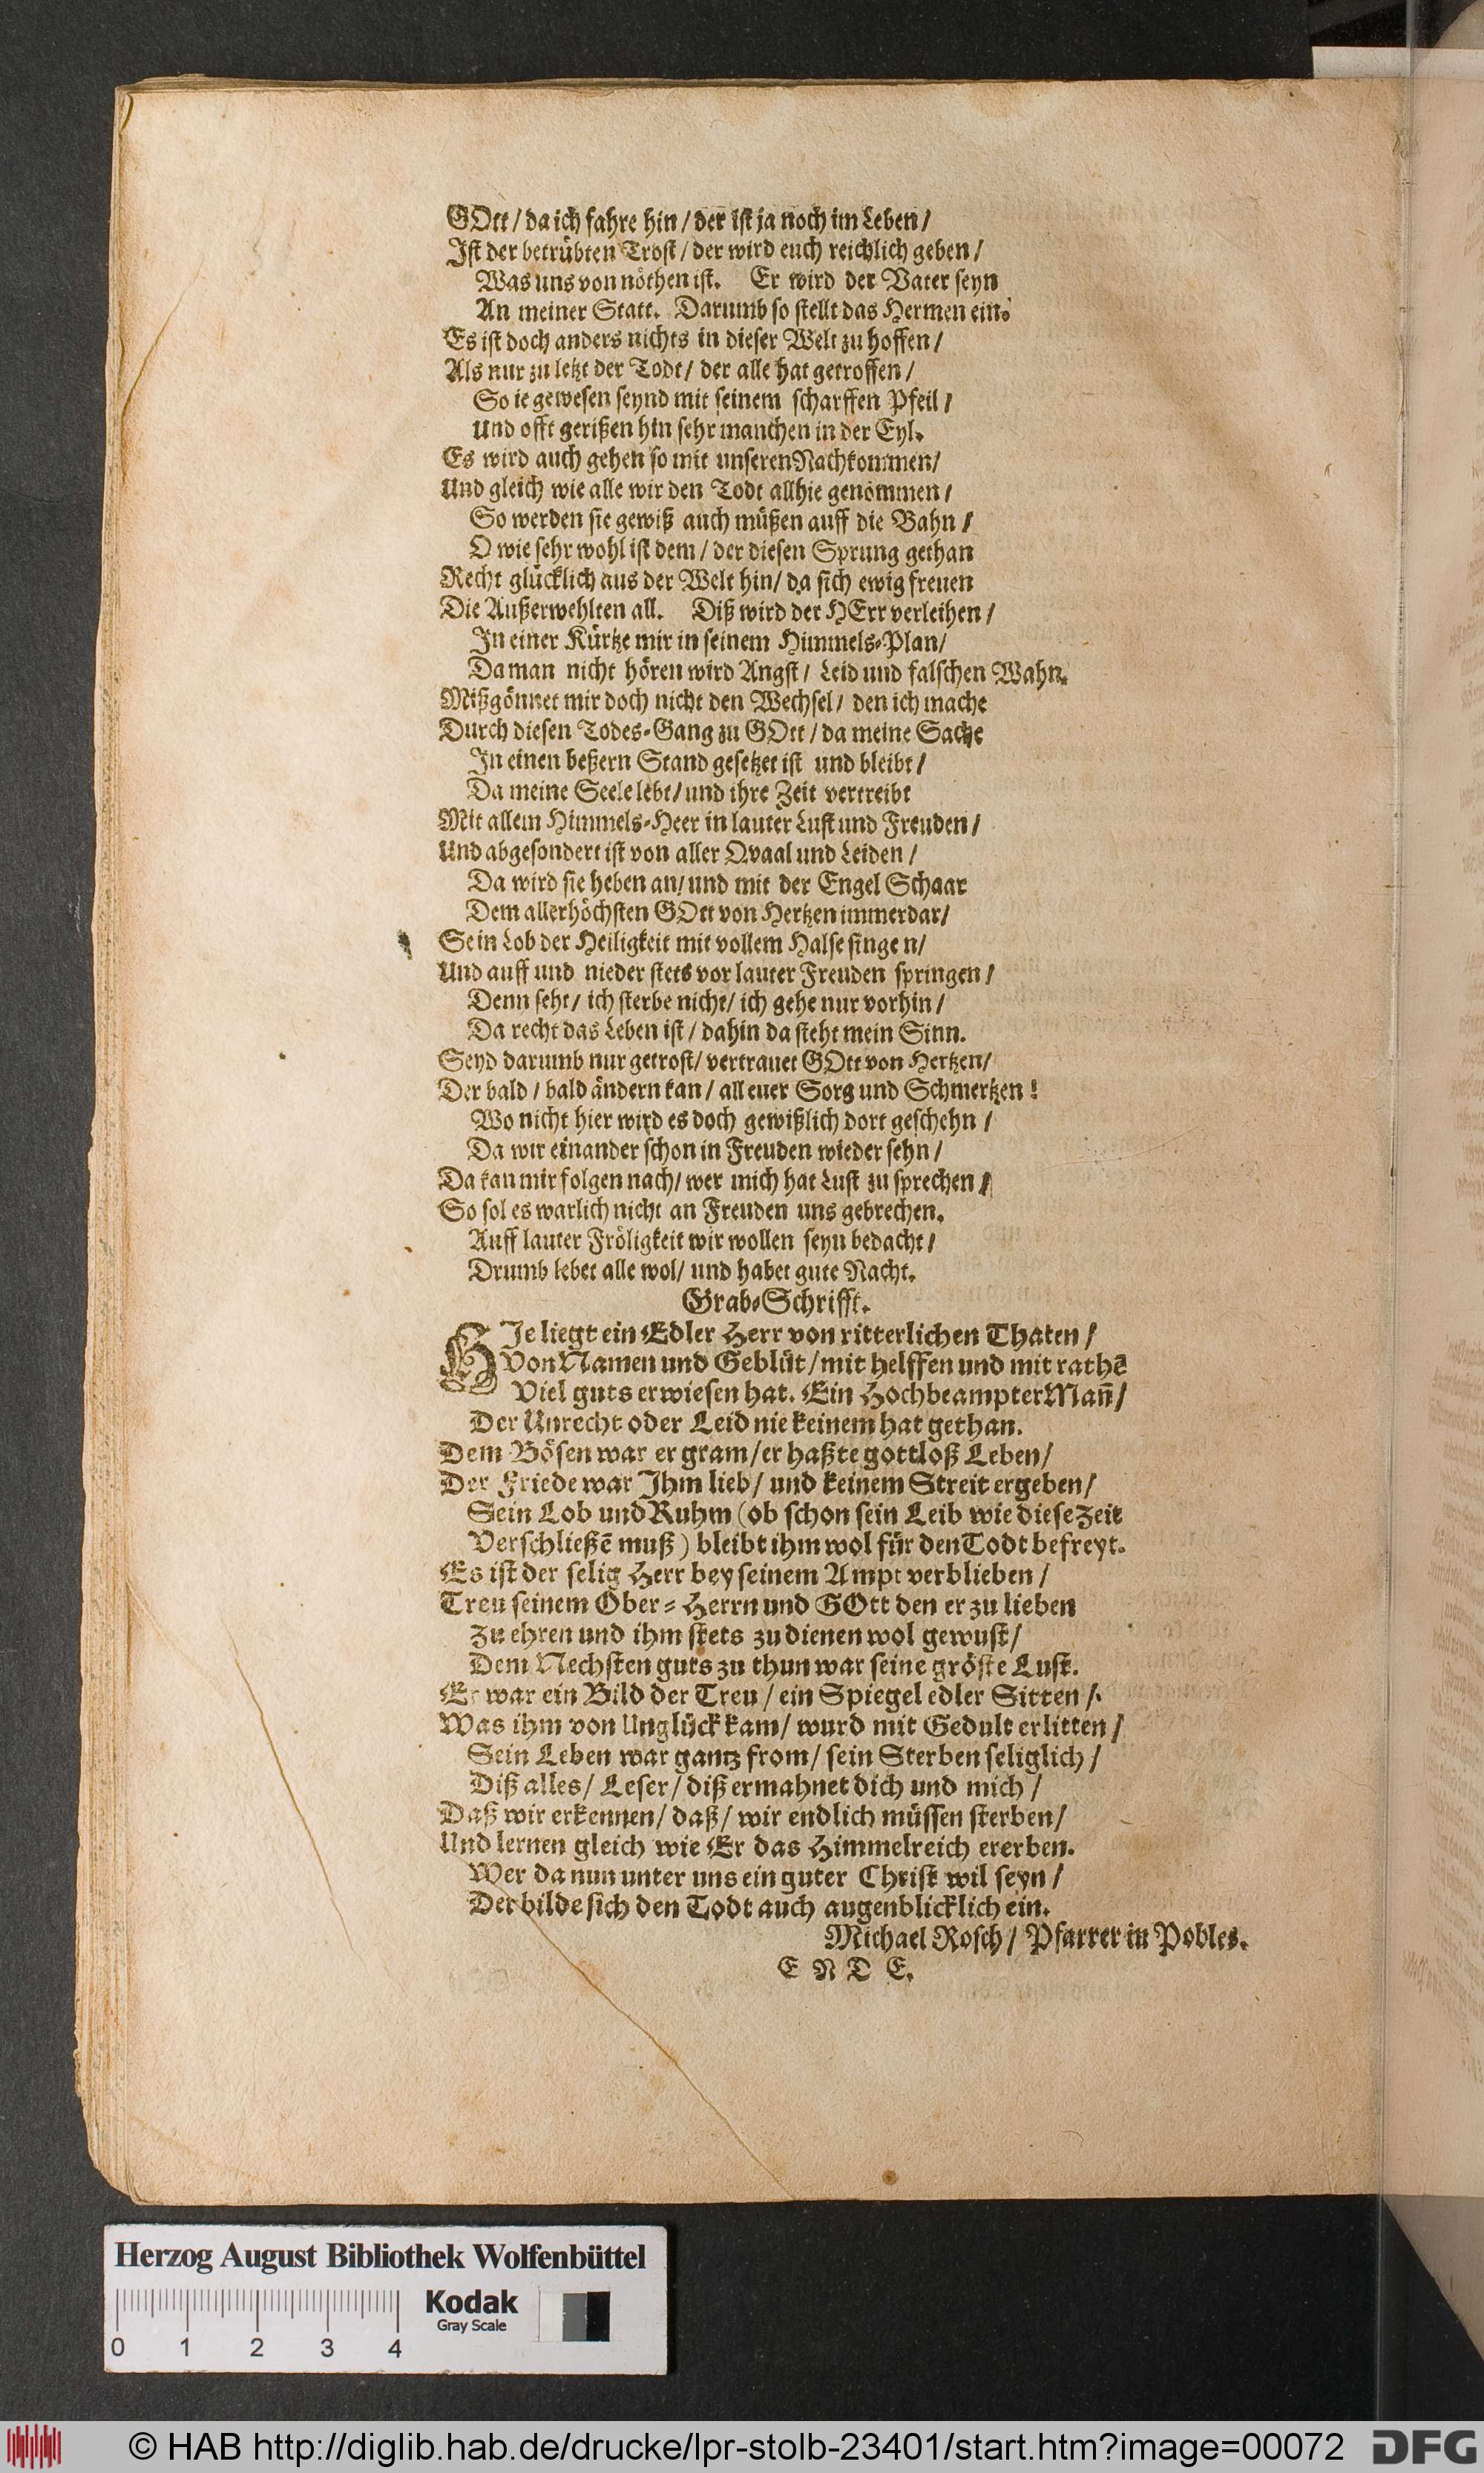 GOtt / da ich fahre hin / der ist ja noch im Leben /
Ist der betrübten Trost / der wird euch reichlich geben /
Was uns von nöthen ist. Er wird der Vater seyn
An meiner Statt. Darumb so stellt das Hermen ein.
Es ist doch anders nichts in dieser Welt zu hoffen /
Als nur zu letzt der Todt / der alle hat getroffen /
So ie gewesen seynd mit seinem scharffen Pfeil /
Und offt gerißen hin sehr manchen in der Eyl.
Es wird auch gehen so mit unseren Nachkommen /
Und gleich wie alle wir den Todt allhie genommen /
So werden sie gewiß auch müßen auff die Bahn /
O wie sehr wohl ist dem / der diesen Sprung gethan
Recht glücklich aus der Welt hin / da sich ewig freuen
Die Außerwehlten all. Diß wird der HErr verleihen /
In einer Kürtze mir in seinem Himmels-Plan /
Da man nicht hören wird Angst / Leid und falschen Wahn.
Mißgönnet mir doch nicht den Wechsel / den ich mache
Durch diesen Todes-Gang zu GOtt / da meine Sache
In einen beßern Stand gesetzet ist und bleibt /
Da meine Seele lebt / und ihre Zeit vertreibt
Mit allem Himmels-Heer in lauter Lust und Freuden /
Und abgesondert ist von aller Qvaal und Leiden /
Da wird sie heben an / und mit der Engel Schaar
Dem allerhöchsten GOtt von Hertzen immerdar /
Sein Lob der Heiligkeit mit vollem Halse singen /
Und auff und nieder stets vor lauter Freuden springen /
Denn seht / ich sterbe nicht / ich gehe nur vorhin /
Da recht das Leben ist / dahin da steht mein Sinn.
Seyd darumb nur getrost / vertrauet GOtt von Hertzen /
Der bald / bald ändern kan / all euer Sorg und Schmertzen !
Wo nicht hier wird es doch gewißlich dort geschehn /
Da wir einander schon in Freuden wieder sehn /
Da kan mir folgen nach / wer mich hat Lust zu sprechen /
So sol es warlich nicht an Freuden uns gebrechen.
Auff lauter Fröligkeit wir wollen seyn bedacht /
Drumb lebet alle wol / und habet gute Nacht.
Grab-Schrifft.
HIe liegt ein Edler Herr von ritterlichen Thaten /
Von Namen und Geblüt / mit helffen und mit rathē
Viel guts erwiesen hat. Ein Hochbeampter Mañ /
Der Unrecht oder Leid nie keinem hat gethan.
Dem Bösen war er gram / er haßte gottloß Leben /
Der Friede war Ihm lieb / und keinem Streit ergeben /
Sein Lob und Ruhm (ob schon sein Leib wie diese Zeit
Verschließē muß) bleibt ihm wol für den Todt befreyt.
Es ist der selig Herr bey seinem Ampt verblieben /
Treu seinem Ober-Herrn und GOtt den er zu lieben
Zu ehren und ihm stets zu dienen wol gewust /
Dem Nechsten guts zu thun war seine gröste Lust.
Er war ein Bild der Treu / ein Spiegel edler Sitten /
Was ihm von Unglück kam / wurd mit Gedult erlitten /
Sein Leben war gantz from / sein Sterben seliglich /
Diß alles / Leser / diß ermahnet dich und mich /
Daß wir erkennen / daß / wir endlich müssen sterben /
Und lernen gleich wie Er das Himmelreich ererben.
Wer da nun unter uns ein guter Christ wil seyn /
Der bilde sich den Todt auch augenblicklich ein.
Michael Rosch / Pfarrer in Pobles.
E N D E.
Herzog August Bibliothek Wolfenbüttel
0 1 2 3 4
Kodak
Gray Scale
© HAB http://diglib.hab.de/drucke/lpr-stolb-23401/start.htm?image=00072
DFG